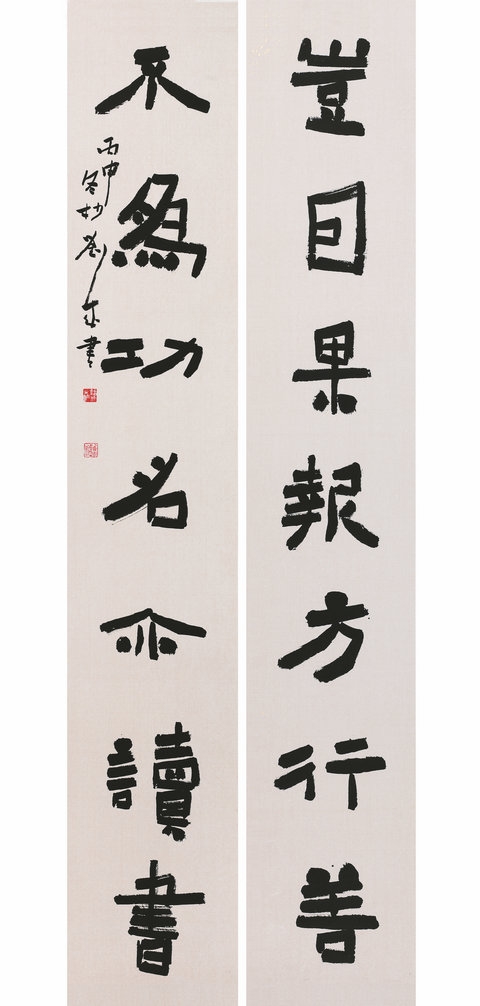 豈因果報方行善
不爲功名亦讀書
丙申冬杪劉書